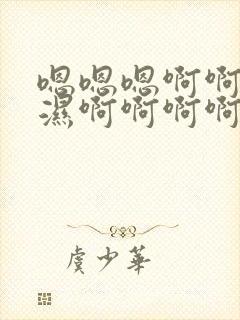 嗯嗯嗯啊啊
濕啊啊啊啊
虞少華